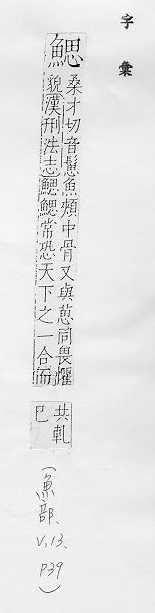 字彙
鰓
桑才切音鬛魚頰中骨又與葸同畏懼
貌漢刑法志鰓鰓常恐天下之一合而
共軋
巳
(魚部、
V,13,
P39)